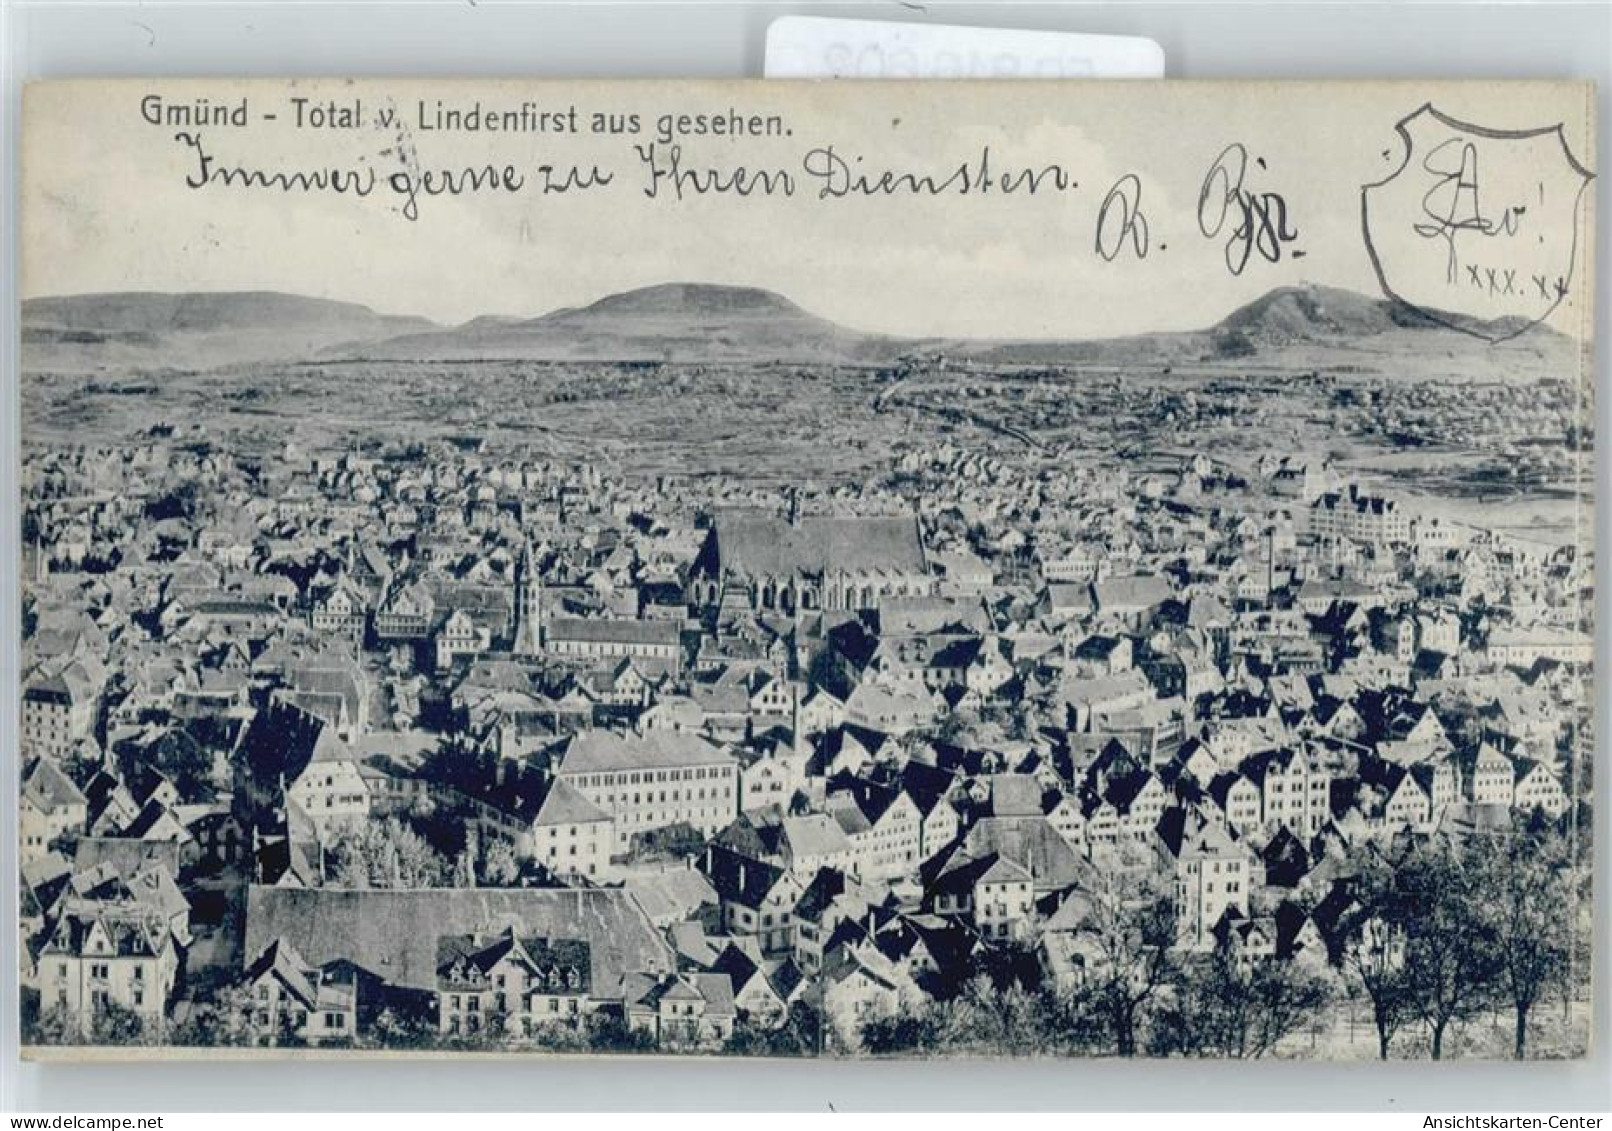 Gmünd - Total v. Lindenfirst aus gesehen.
Immer gerne zu Ihren Diensten.
R.
xxx.xx.
www.oldthing.de
Ansichtskarten-Center